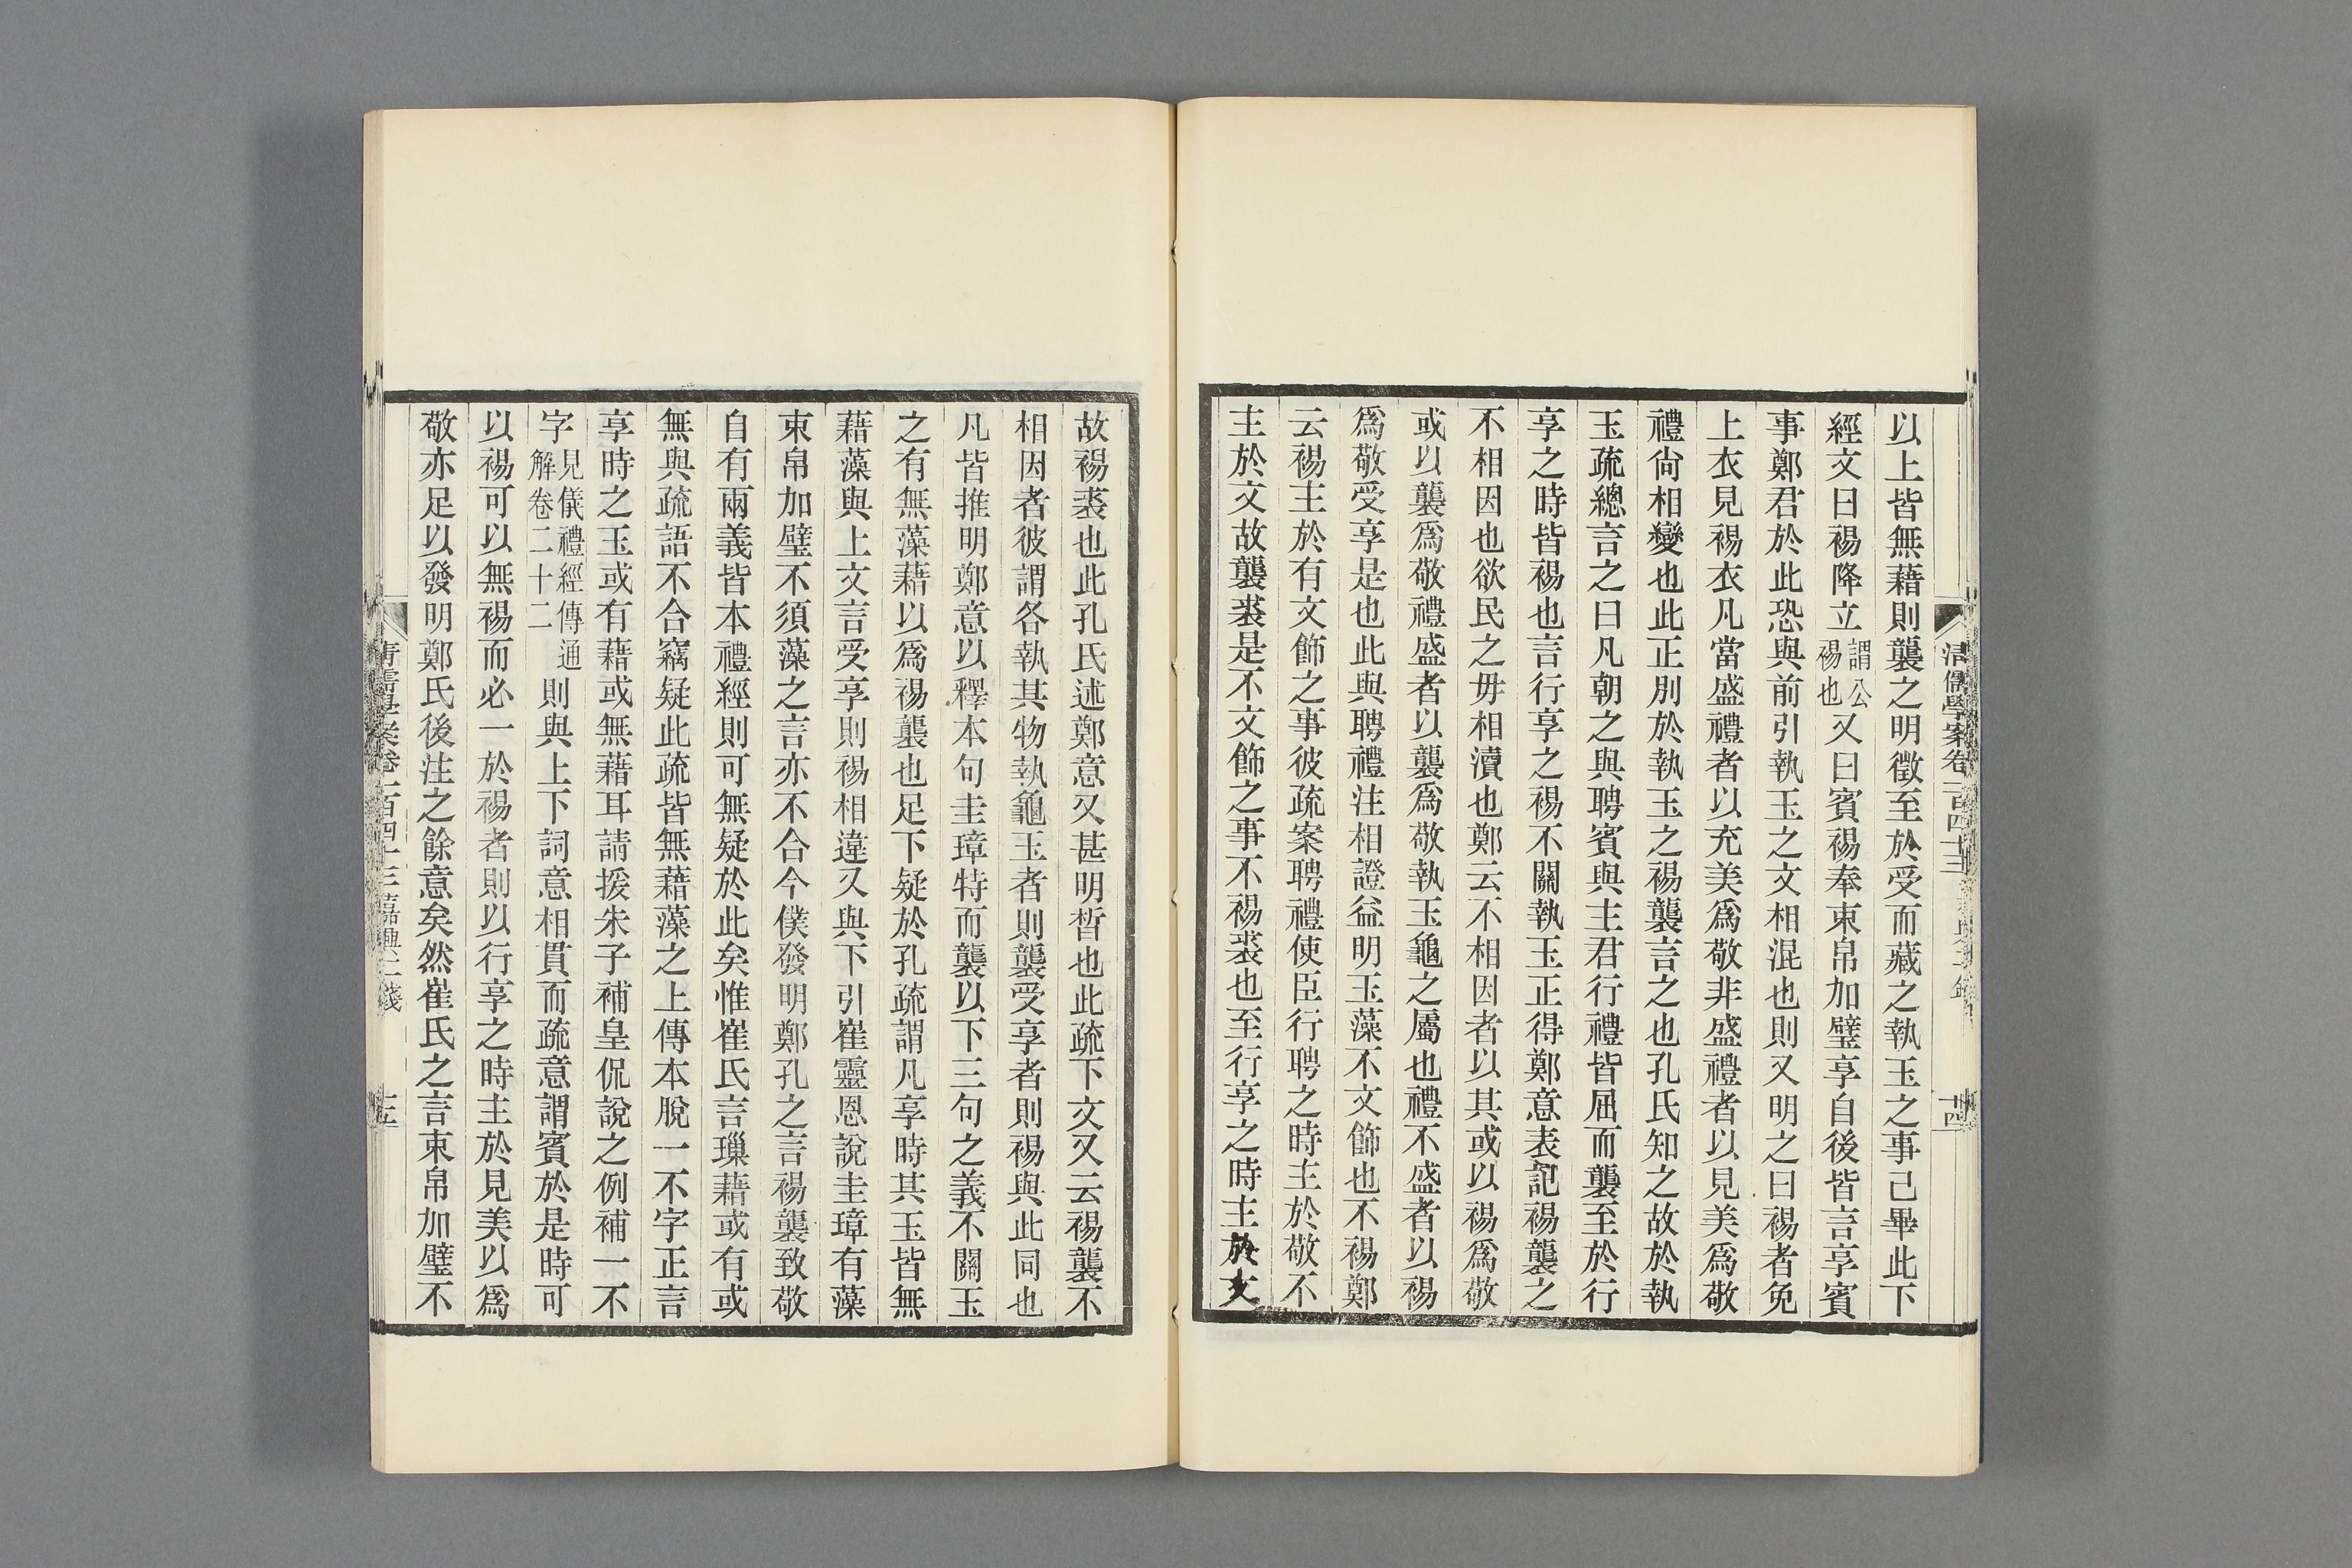 以上皆無藉則襲之明徵至於受而藏之執玉之事已畢此下
經文曰裼降立謂公裼也又曰賓裼奉束帛加璧享自後皆言享賓
事鄭君於此恐與前引執玉之文相混也則又明之曰裼者免
上衣見裼衣凡當盛禮者以充美爲敬非盛禮者以見美爲敬
禮尙相變也此正別於執玉之裼襲言之也孔氏知之故於執
玉疏總言之曰凡朝之與聘賓與主君行禮皆屈而襲至於行
享之時皆裼也言行享之裼不關執玉正得鄭意表記裼襲之
不相因也欲民之毋相瀆也鄭云不相因者以其或以裼爲敬
或以襲爲敬禮盛者以襲爲敬執玉龜之屬也禮不盛者以裼
爲敬受享是也此與聘禮注相證益明玉藻不文飾也不裼鄭
云裼主於有文飾之事彼疏案聘禮使臣行聘之時主於敬不
主於文故襲裘是不文飾之事不裼裘也至行享之時主於文
清儒學案卷一百四十三
十四
故裼裘也此孔氏述鄭意又甚明晳也此疏下文又云裼襲不
相因者彼謂各執其物執龜玉者則襲受享者則裼與此同也
凡皆推明鄭意以釋本句圭璋特而襲以下三句之義不關玉
之有無藻藉以爲裼襲也足下疑於孔疏謂凡享時其玉皆無
藉藻與上文言受享則裼相違又與下引崔靈恩說圭璋有藻
束帛加璧不須藻之言亦不合今僕發明鄭孔之言裼襲致敬
自有兩義皆本禮經則可無疑於此矣惟崔氏言璅藉或有或
無與疏語不合竊疑此疏皆無藉藻之上傳本脫一不字正言
享時之玉或有藉或無藉耳請援朱子補皇侃說之例補一不
字見儀禮經傳通解卷二十二則與上下詞意相貫而疏意謂賓於是時可
以裼可以無裼而必一於裼者則以行享之時主於見美以爲
敬亦足以發明鄭氏後注之餘意矣然崔氏之言束帛加璧不
清儒學案卷一百四十三 嘉興二錢
十五